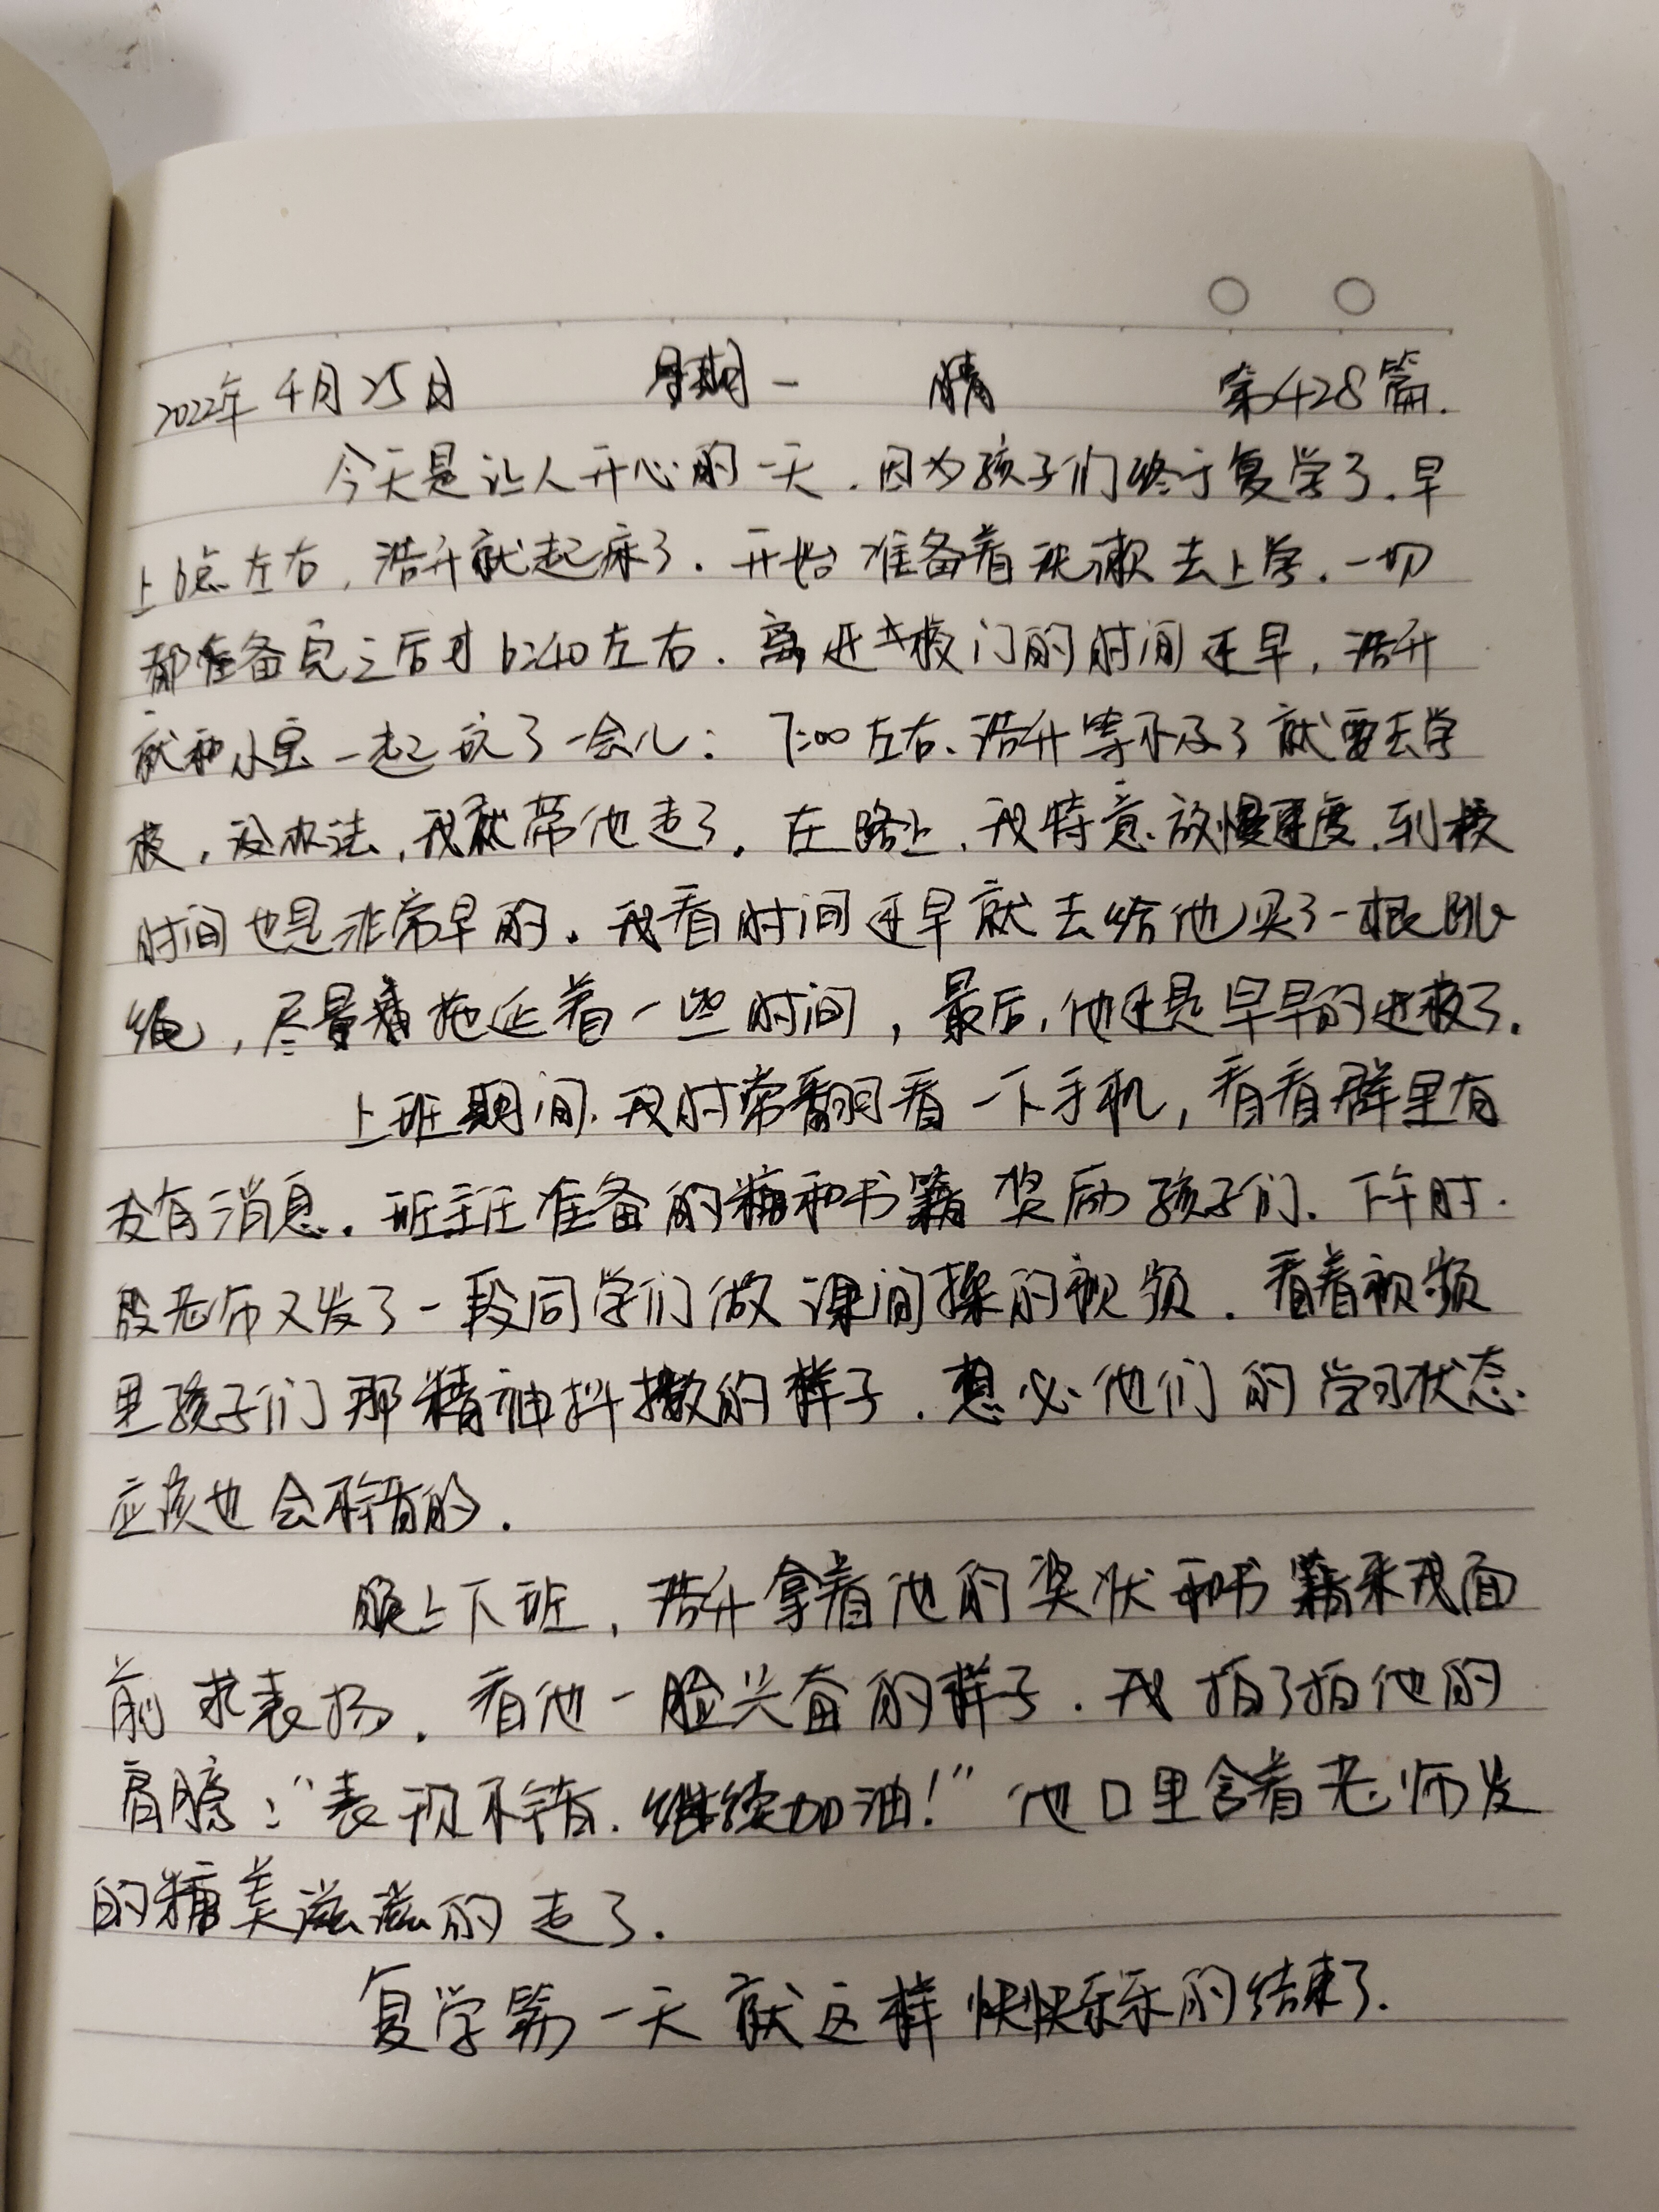 2022年4月25日 星期一 晴 第428篇.
今天是让人开心的一天.因为孩子们终于复学了.早
上6点左右,浩升就起床了.开始准备着洗漱去上学.一切
都准备完之后才6:40左右.离进校门的时间还早,浩升
就和小宝一起玩了一会儿:7:00左右、浩升等不及了就要去学
校,没办法,我就带他走了.在路上、我特意放慢速度.到校
时间也是非常早的.我看时间还早就去给他买了一根跳
绳,尽量着拖延着一些时间,最后,他还是早早的进校了.
上班期间.我时常翻看一下手机,看看群里有
没有消息.班主任准备的糖和书籍奖励孩子们.下午时.
段老师又发了一段同学们做课间操的视频.看着视频
里孩子们那精神抖擞的样子.想必他们的学习状态
应该也会不错的.
晚上下班,浩升拿着他的奖状和书籍来我面
前求表扬.看他一脸兴奋的样子.我拍了拍他的
肩膀:“表现不错.继续加油!”他口里含着老师发
的糖美滋滋的走了.
复学第一天就这样快快乐乐的结束了.